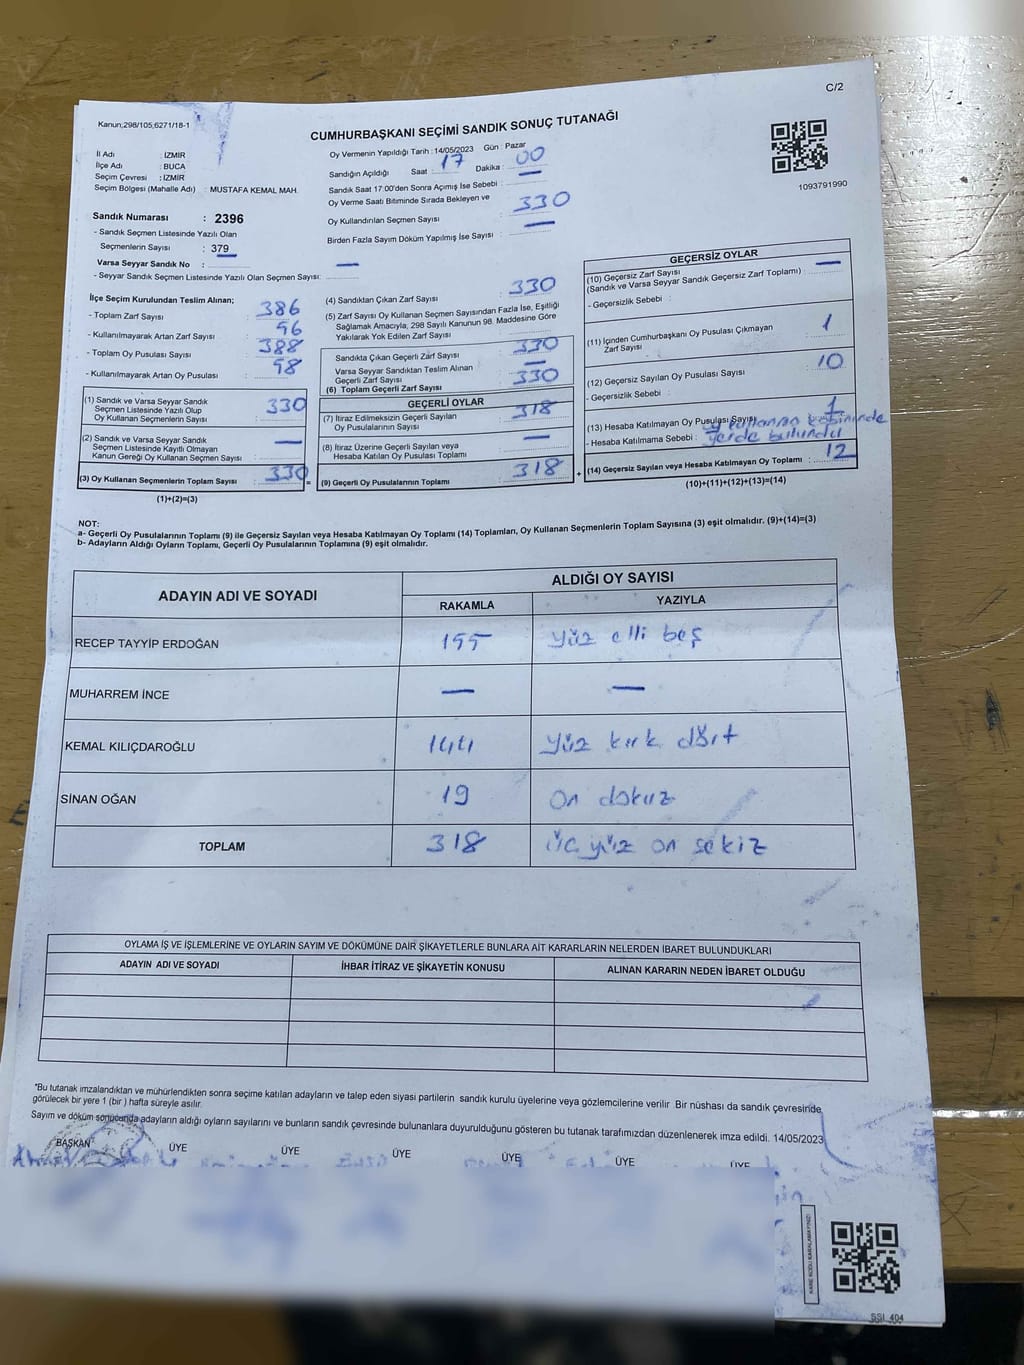 C/2
Kanun;298/105,6271/18-1
CUMHURBAŞKANI SEÇİMİ SANDIK SONUÇ TUTANAĞI
İl Adı : İZMİR
İlçe Adı : BUCA
Seçim Çevresi : İZMİR
Seçim Bölgesi (Mahalle Adı) : MUSTAFA KEMAL MAH.
Oy Vermenin Yapıldığı Tarih : 14/05/2023 Gün : Pazar
Sandığın Açıldığı Saat : 17 Dakika : 00
Sandık Saat 17:00'den Sonra Açımış İse Sebebi : —
Oy Verme Saati Bitiminde Sırada Bekleyen ve
Oy Kullandırılan Seçmen Sayısı 330
Birden Fazla Sayım Döküm Yapılmış İse Sayısı : —
1093791990
Sandık Numarası : 2396
- Sandık Seçmen Listesinde Yazılı Olan
Seçmenlerin Sayısı : 379
Varsa Seyyar Sandık No : —
- Seyyar Sandık Seçmen Listesinde Yazılı Olan Seçmen Sayısı:
İlçe Seçim Kurulundan Teslim Alınan;
- Toplam Zarf Sayısı : 386
- Kullanılmayarak Artan Zarf Sayısı : 56
- Toplam Oy Pusulası Sayısı : 388
- Kullanılmayarak Artan Oy Pusulası : 58
(1) Sandık ve Varsa Seyyar Sandık
Seçmen Listesinde Yazılı Olup
Oy Kullanan Seçmenlerin Sayısı : 330
(2) Sandık ve Varsa Seyyar Sandık
Seçmen Listesinde Kayıtlı Olmayan
Kanun Gereği Oy Kullanan Seçmen Sayısı : —
(3) Oy Kullanan Seçmenlerin Toplam Sayısı : 330
(1)+(2)=(3)
(4) Sandıktan Çıkan Zarf Sayısı : 330
(5) Zarf Sayısı Oy Kullanan Seçmen Sayısından Fazla İse, Eşitliği
Sağlamak Amacıyla, 298 Sayılı Kanunun 98. Maddesine Göre
Yakılarak Yok Edilen Zarf Sayısı :
Sandıkta Çıkan Geçerli Zarf Sayısı : 330
Varsa Seyyar Sandıktan Teslim Alınan
Geçerli Zarf Sayısı : —
(6) Toplam Geçerli Zarf Sayısı : 330
GEÇERLİ OYLAR
(7) İtiraz Edilmeksizin Geçerli Sayılan
Oy Pusulalarının Sayısı : 318
(8) İtiraz Üzerine Geçerli Sayılan veya
Hesaba Katılan Oy Pusulası Toplamı : —
= (9) Geçerli Oy Pusulalarının Toplamı : 318 +
GEÇERSİZ OYLAR
(10) Geçersiz Zarf Sayısı
(Sandık ve Varsa Seyyar Sandık Geçersiz Zarf Toplamı) : —
- Geçersizlik Sebebi :
(11) İçinden Cumhurbaşkanı Oy Pusulası Çıkmayan
Zarf Sayısı : 1
(12) Geçersiz Sayılan Oy Pusulası Sayısı : 10
- Geçersizlik Sebebi :
(13) Hesaba Katılmayan Oy Pusulası Sayısı : 1
- Hesaba Katılmama Sebebi : kabininde
yerde bulundu
(14) Geçersiz Sayılan veya Hesaba Katılmayan Oy Toplamı : 12
(10)+(11)+(12)+(13)=(14)
NOT:
a- Geçerli Oy Pusulalarının Toplamı (9) ile Geçersiz Sayılan veya Hesaba Katılmayan Oy Toplamı (14) Toplamları, Oy Kullanan Seçmenlerin Toplam Sayısına (3) eşit olmalıdır. (9)+(14)=(3)
b- Adayların Aldığı Oyların Toplamı, Geçerli Oy Pusulalarının Toplamına (9) eşit olmalıdır.
ADAYIN ADI VE SOYADI ALDIĞI OY SAYISI
RAKAMLA YAZIYLA
RECEP TAYYİP ERDOĞAN 155 yüz elli beş
MUHARREM İNCE — —
KEMAL KILIÇDAROĞLU 144 yüz kırk dört
SİNAN OĞAN 19 on dokuz
TOPLAM 318 üç yüz on sekiz
OYLAMA İŞ VE İŞLEMLERİNE VE OYLARIN SAYIM VE DÖKÜMÜNE DAİR ŞİKAYETLERLE BUNLARA AİT KARARLARIN NELERDEN İBARET BULUNDUKLARI
ADAYIN ADI VE SOYADI İHBAR İTİRAZ VE ŞİKAYETİN KONUSU ALINAN KARARIN NEDEN İBARET OLDUĞU
*Bu tutanak imzalandıktan ve mühürlendikten sonra seçime katılan adayların ve talep eden siyasi partilerin sandık kurulu üyelerine veya gözlemcilerine verilir. Bir nüshası da sandık çevresinde,
görülecek bir yere 1 (bir ) hafta süreyle asılır.
Sayım ve döküm sonucunda adayların aldığı oyların sayılarını ve bunların sandık çevresinde bulunanlara duyurulduğunu gösteren bu tutanak tarafımızdan düzenlenerek imza edildi. 14/05/2023
BAŞKAN ÜYE ÜYE ÜYE ÜYE ÜYE ÜYE
KARE KODU KARALAMAYINIZ!
SSİ_404